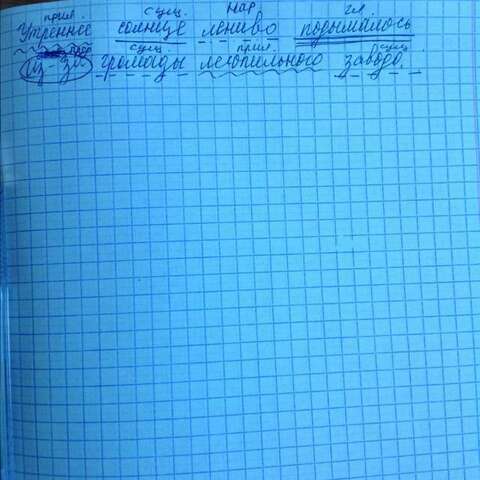 прил. сущ. нар. гл.
Утреннее солнце лениво подымалось
пред. сущ. прил. сущ.
из-за громады лесопильного завода.